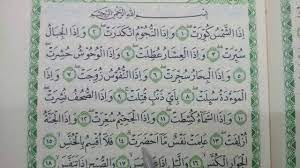 بِسْمِ اللَّهِ الرَّحْمَٰنِ الرَّحِيمِ
إِذَا الشَّمْسُ كُوِّرَتْ ١ وَإِذَا النُّجُومُ انْكَدَرَتْ ٢ وَإِذَا الْجِبَالُ
سُيِّرَتْ ٣ وَإِذَا الْعِشَارُ عُطِّلَتْ ٤ وَإِذَا الْوُحُوشُ حُشِرَتْ
٥ وَإِذَا الْبِحَارُ سُجِّرَتْ ٦ وَإِذَا النُّفُوسُ زُوِّجَتْ ٧ وَإِذَا
الْمَوْءُودَةُ سُئِلَتْ ٨ بِأَيِّ ذَنْبٍ قُتِلَتْ ٩ وَإِذَا الصُّحُفُ نُشِرَتْ
١٠ وَإِذَا السَّمَاءُ كُشِطَتْ ١١ وَإِذَا الْجَحِيمُ سُعِّرَتْ ١٢ وَإِذَا الْجَنَّةُ
أُزْلِفَتْ ١٣ عَلِمَتْ نَفْسٌ مَا أَحْضَرَتْ ١٤ فَلَا أُقْسِمُ بِالْخُنَّسِ ١٥
الْجَوَارِ الْكُنَّسِ ١٦ وَاللَّيْلِ إِذَا عَسْعَسَ ١٧ وَالصُّبْحِ إِذَا تَنَفَّسَ